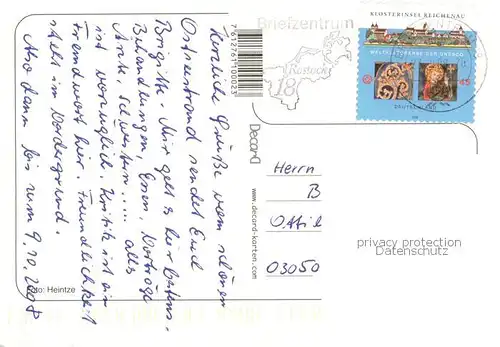 Herzliche Grüße vom schönen
Ostseestrand sendet Euch
Brigitte. Mir geht's hier bestens.
Behandlungen, Essen, Vorträge
Ärzte, Schwestern..... alles
ist vorzüglich. Kritik ist ein
Fremdwort hier. Freundlichkeit
stets im Vordergrund.
Also dann bis zum 9.10.2008
Foto: Heintze
7612761100023
Decard
www.decard-karten.com
Briefzentrum
Rostock
18
KLOSTERINSEL REICHENAU
WELTKULTURERBE DER UNESCO
45
DEUTSCHLAND
Herrn
B
03050
privacy protection
Datenschutz